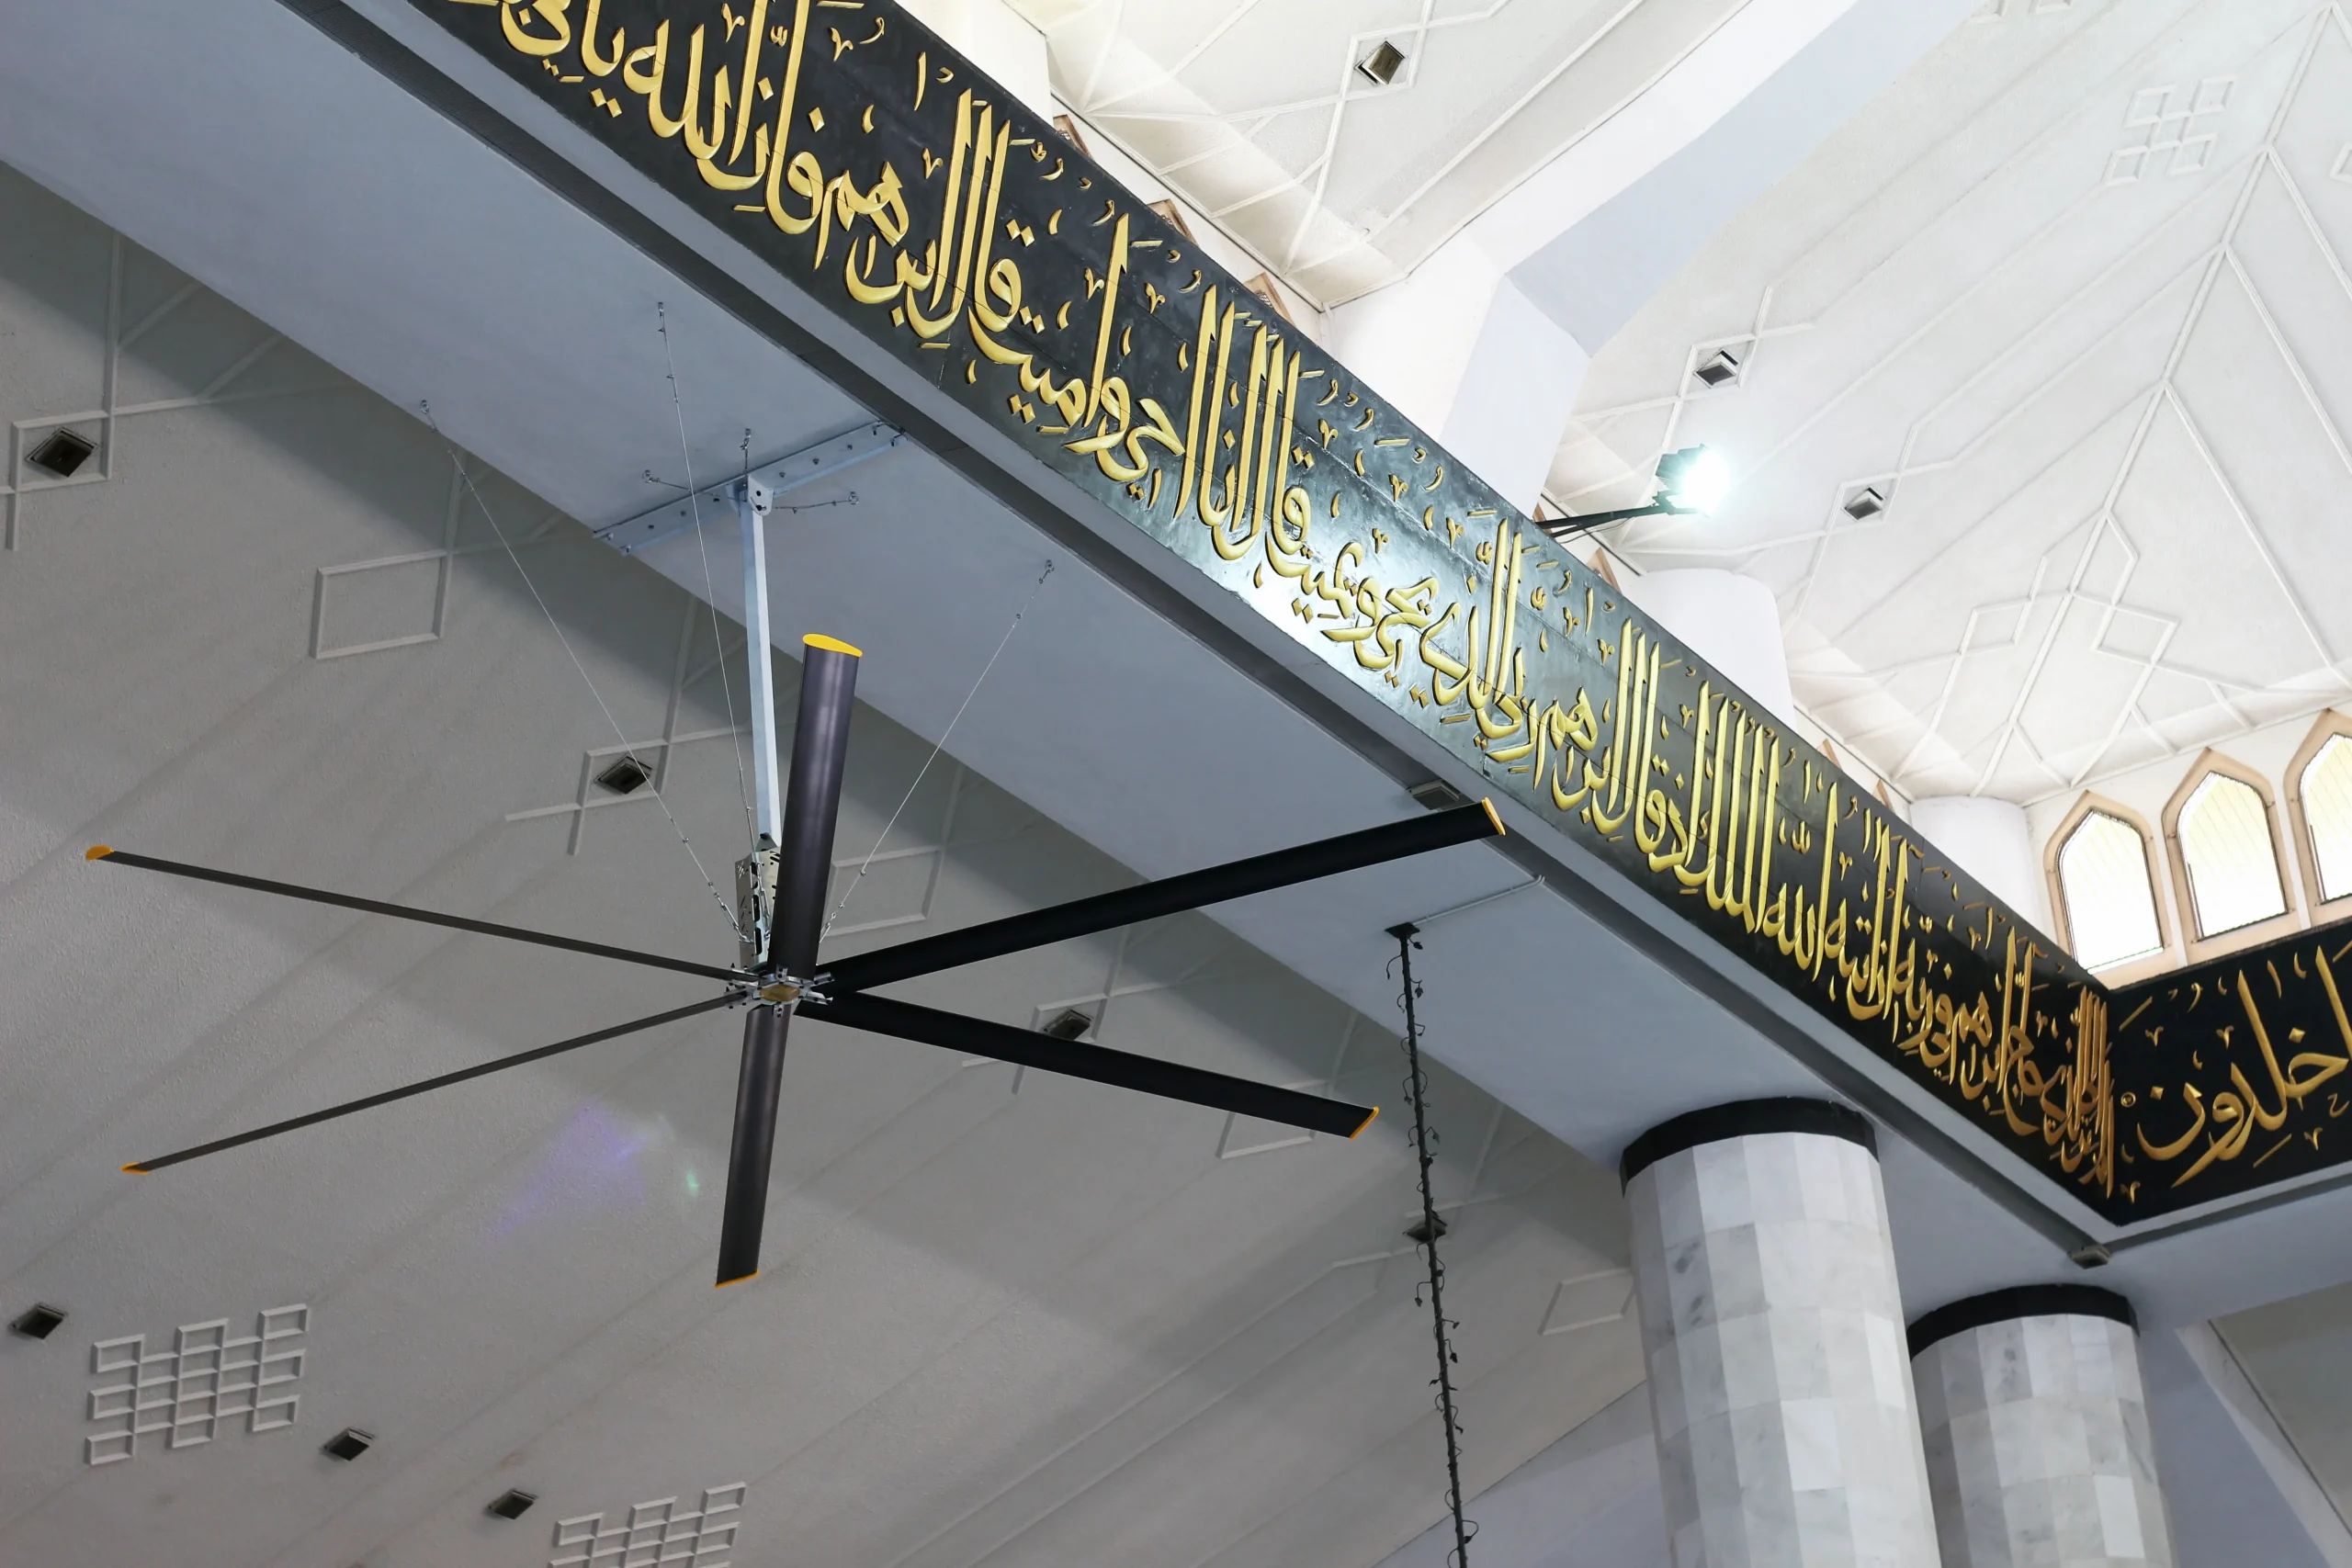 خَٰلِدُونَ
أَلَمْ تَرَ إِلَى الَّذِي حَاجَّ إِبْرَٰهِمَ فِي رَبِّهِ أَنْ ءَاتَىٰهُ اللَّهُ الْمُلْكَ إِذْ قَالَ إِبْرَٰهِمُ رَبِّيَ الَّذِي يُحْيِي وَيُمِيتُ قَالَ أَنَا أُحْيِي وَأُمِيتُ قَالَ إِبْرَٰهِمُ فَإِنَّ اللَّهَ يَأْتِي